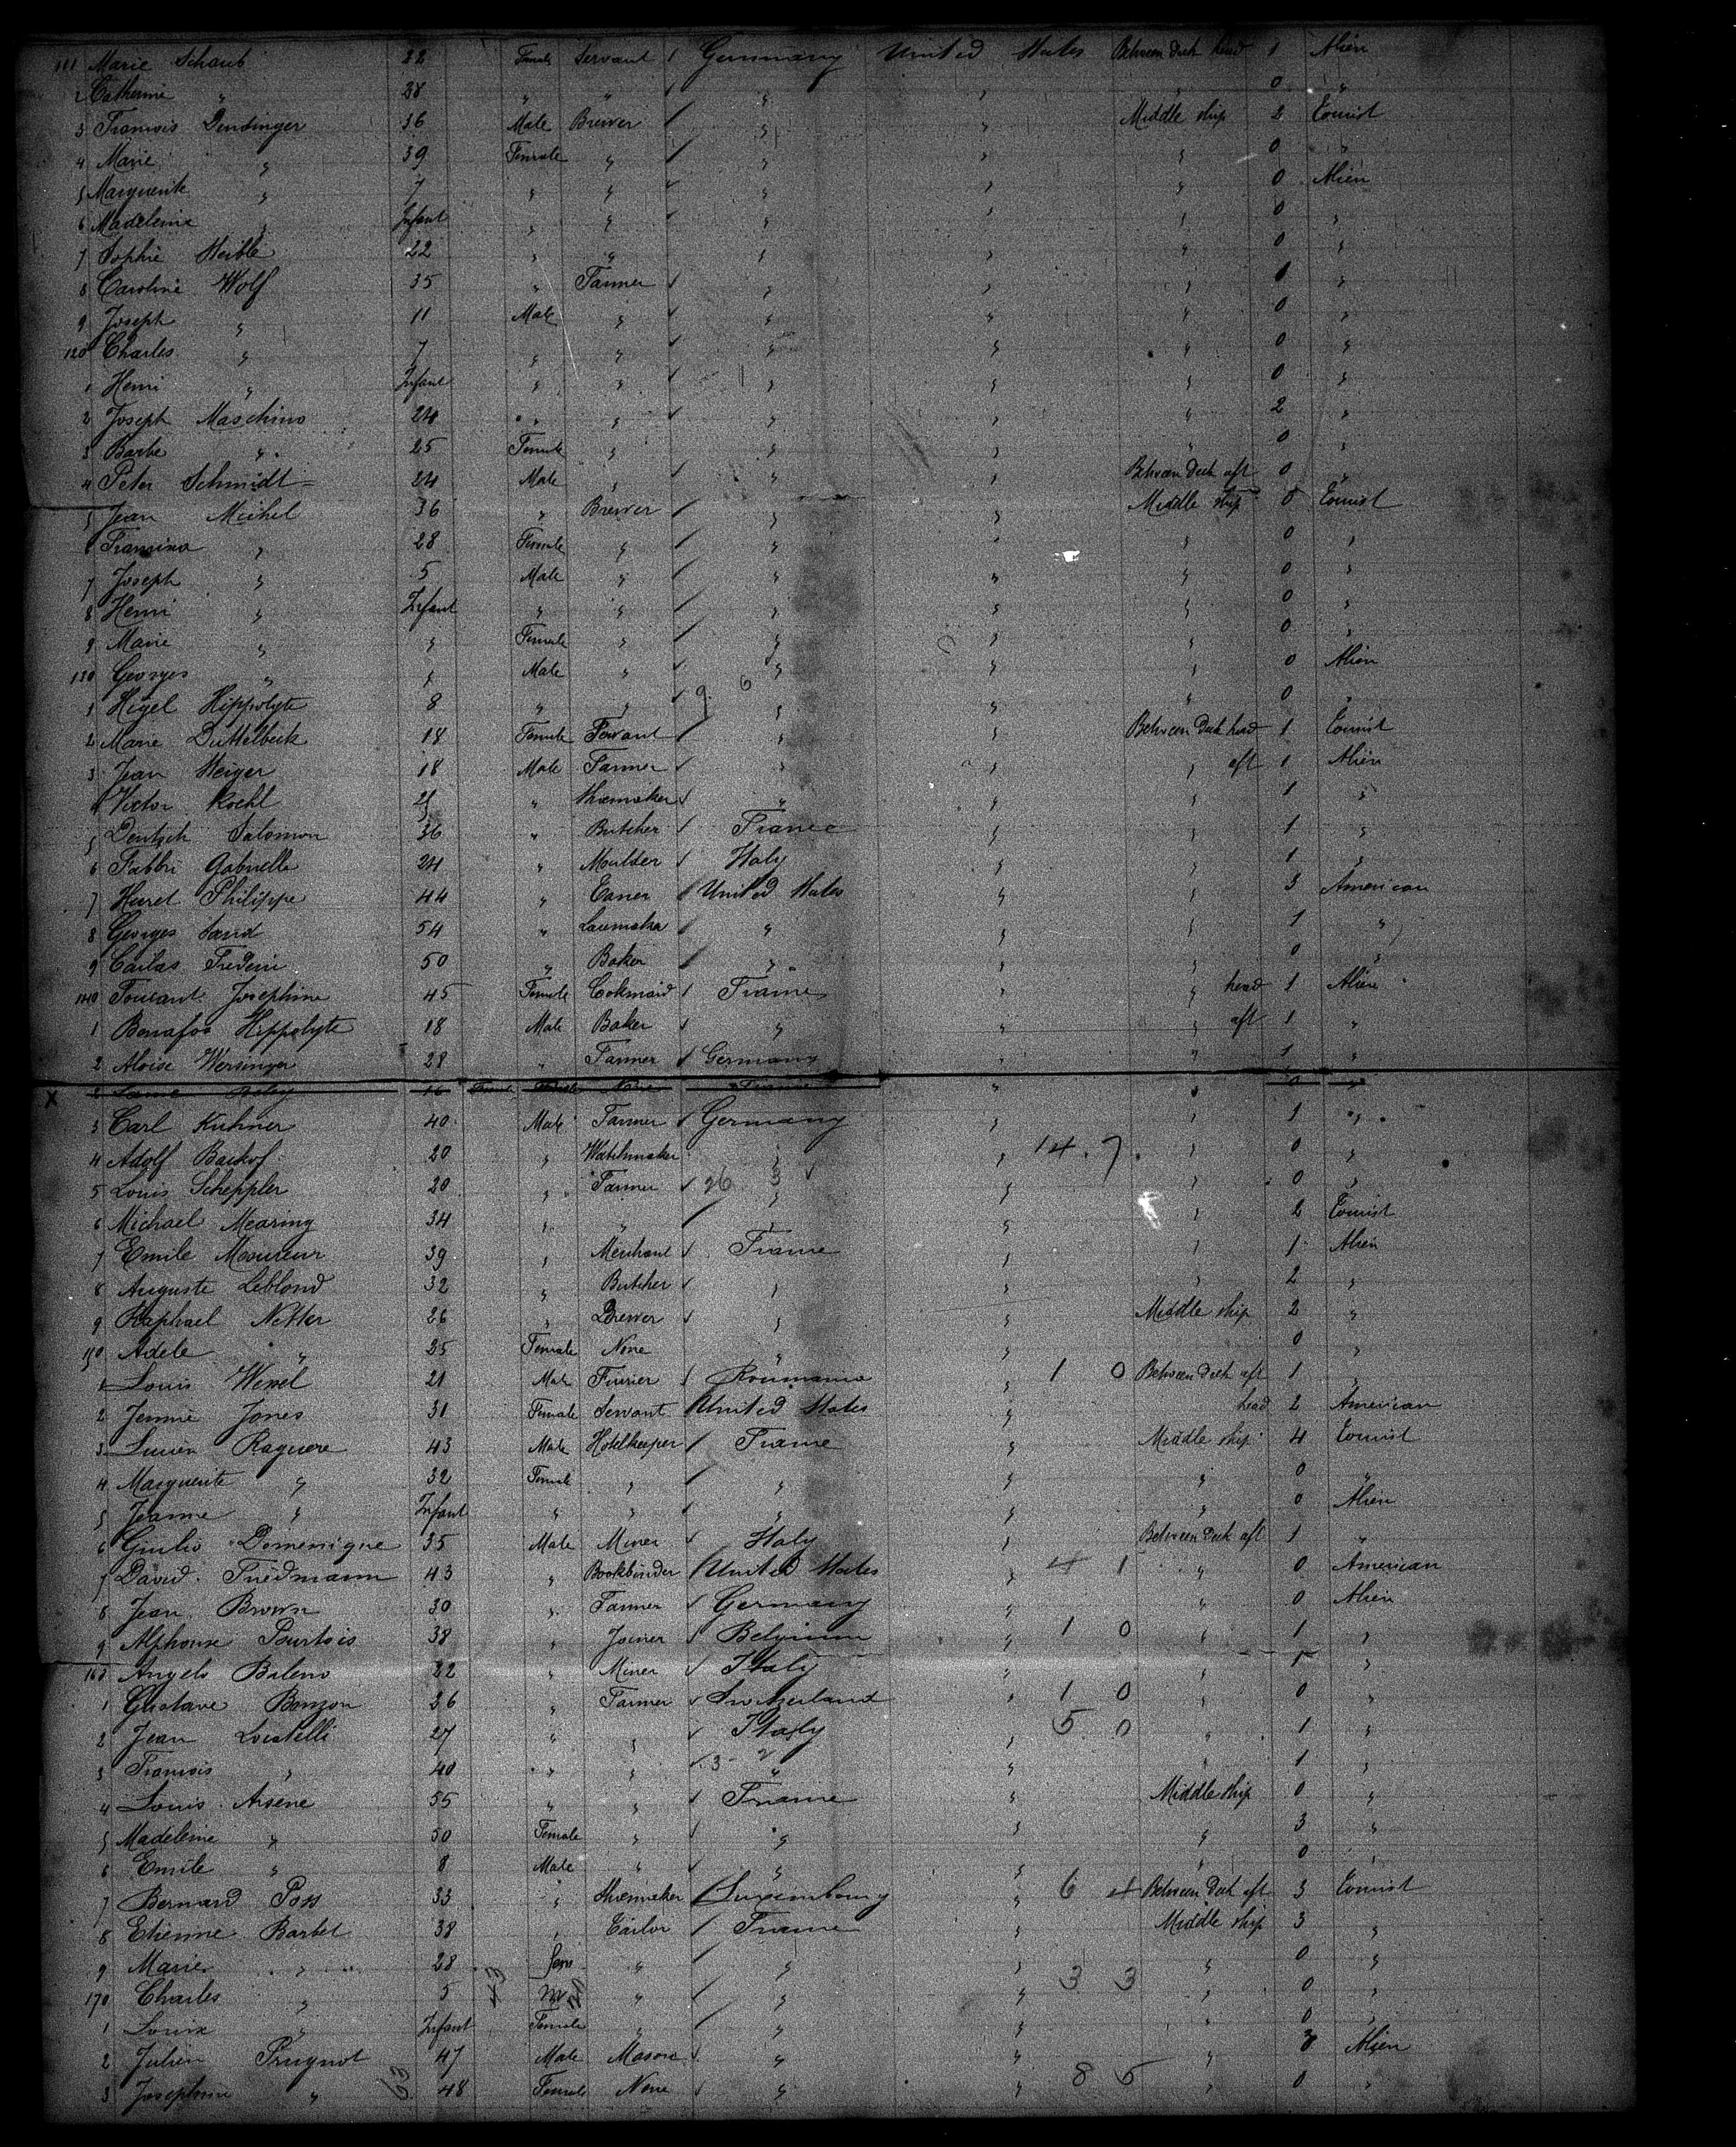 111 Marie Schaub 22 Female Servant / Germany United States Between Deck head 1 Alien
2 Catherine " 28 " " / " " " 0 "
3 Francois Dendinger 36 Male Brewer / " " Middle ship 2 Tourist
4 Marie " 39 Female " / " " " 0 "
5 Marguerite " 7 " " " " " 0 Alien
6 Madeleine " Infant " " " " " 0 "
7 Sophie Weible 22 " " " " " 0 "
8 Caroline Wolf 35 " Farmer " " " 1 "
9 Joseph " 11 Male " " " " 0 "
120 Charles " 7 " " " " " 0 "
1 Henri " Infant " " " " " 0 "
2 Joseph Maschino 24 " " " " " 2 "
3 Barbe " 25 Female " " " " 0 "
4 Peter Schmidt 24 Male " " " Between Deck aft 0 "
5 Jean Michel 36 " Brewer / " " Middle ship 0 Tourist
6 " 28 Female " / " " " 0 "
7 Joseph " 5 Male " / " " " 0 "
8 Henri " Infant " " / " " " 0 "
9 Marie " " Female " / " " " 0 "
130 Georges " " Male " " " " 0 Alien
9 6
1 Higel Hippolyte 8 " " " " " 0 "
2 Marie Duttelbeck 18 Female Servant / " " Between Deck head 1 Tourist
3 Jean Weiger 18 Male Farmer " " " aft 1 Alien
4 Victor Roehl " Shoemaker " " " 1 "
5 Deutsch Salomon 36 " Butcher / France " " 1 "
6 Fabbri Gabrielle 24 " Moulder Italy " " 1 "
7 Huret Philippe 44 " United States " " 3 American
8 Georges 54 " " " " 1 "
9 Frederic 50 " Baker " " " 0 "
140 Toucant Josephine 45 Female Cokmaid / France " " head 1 Alien
1 Bonafos Hippolyte 18 Male Baker " " " aft 1 "
2 Aloise Wersinger 28 " Farmer Germany " " 1 "
X 16 Female None France " " 0 "
3 Carl Kuhner 40 Male Farmer Germany " " 1 "
4 Adolf Backof 20 " Watchmaker " " 14. 7. " 0 "
5 Louis Scheppler 20 " Farmer 26 3 " " " 0 "
6 Michael Mearing 34 " " / " " " 2 Tourist
7 Emile Moureur 39 " Merchant France " " 1 Alien
8 Auguste Leblond 32 " Butcher " " " 2 "
9 Raphael Netter 26 " Brewer " " Middle ship 2 "
150 Adele " 25 Female None " " 0 "
1 Louis Wexel 21 Male Furrier Roumania " 1 0 Between Deck aft 1 "
2 Jennie Jones 31 Female Servant United States " head 2 American
3 Lucien Raguere 43 Male Hotelkeeper / France " Middle ship 4 Tourist
4 Marguerite " 32 Female " / " " " 0 "
5 Jeanne " Infant " " " " " 0 Alien
6 Giulio Domenique 35 Male Miner Italy " Between Deck aft 1 "
7 David Friedmann 43 " Bookbinder United States " 4 1 " 0 American
8 Jean Brown 30 " Farmer Germany " " 0 Alien
9 Alphonse Pourtois 38 " Joiner Belgium " 1 0 " 1 "
160 Angelo Baleno 22 " Miner Italy " " 1 "
1 Gustave Banzon 26 " Farmer Switzerland " 1 0 " 0 "
2 Jean Locatelli 27 " " Italy " 5 0 " 1 "
3 Francois " 40 " " 3 2 " " " 1 "
4 Louis Arsene 55 " " France " Middle ship 0 "
5 Madeleine " 50 Female " " " " 3 "
6 Emile " 8 Male " " " " 0 "
7 Bernard Poss 33 " Shoemaker Luxembourg " 6 4 Between Deck aft 3 Tourist
8 Etienne Bartet 38 " Tailor / France " Middle ship 3 "
9 Marie " 28 Fem " / " " " 0 "
170 Charles " 5 43 M 20 " / " " 3 3 " 0 "
1 Louise " Infant Female " / " " " 0 "
2 Julien Prugnot 47 Male Mason " " " 3 Alien
3 Josephine " 63 48 Female None " " 8 5 " 0 "